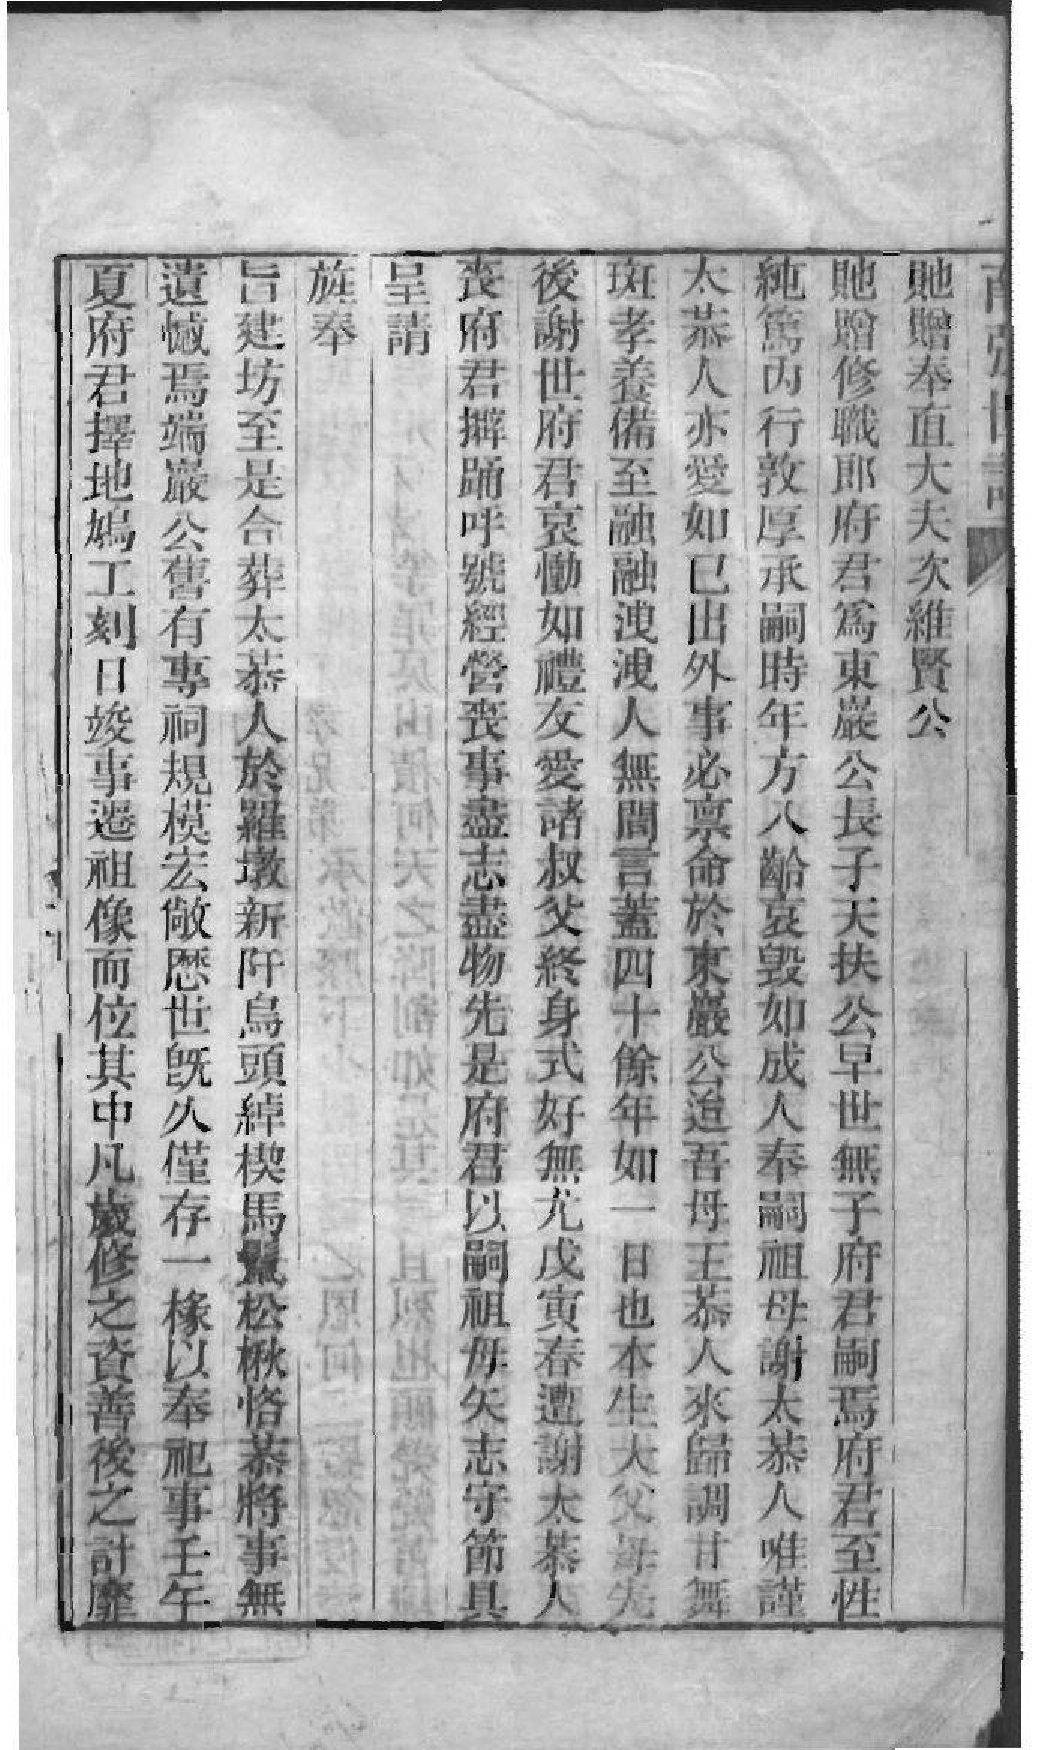 南張世譜
貤贈奉直大夫次維賢公
貤贈修職郎府君爲東巖公長子天扶公早世無子府君嗣焉府君至性
純篤內行敦厚承嗣時年方八齡哀毀如成人奉嗣祖母謝太恭人唯謹
太恭人亦愛如已出外事必禀命於東巖公迨吾母王恭人來歸調甘舞
斑孝養備至融融洩洩人無間言蓋四十餘年如一日也本生大父母先
後謝世府君哀慟如禮友愛諸叔父終身式好無尤戊寅春遭謝太恭人
喪府君擗踊呼號經營喪事盡志盡物先是府君以嗣祖母矢志守節具
呈請
旌奉
旨建坊至是合葬太恭人於羅墩新阡烏頭綽楔馬鬣松楸恪恭將事無
遺憾焉端巖公舊有專祠規模宏敞歷世旣久僅存一椽以奉祀事壬午
夏府君擇地鳩工刻日竣事遷祖像而位其中凡歲修之資善後之計靡